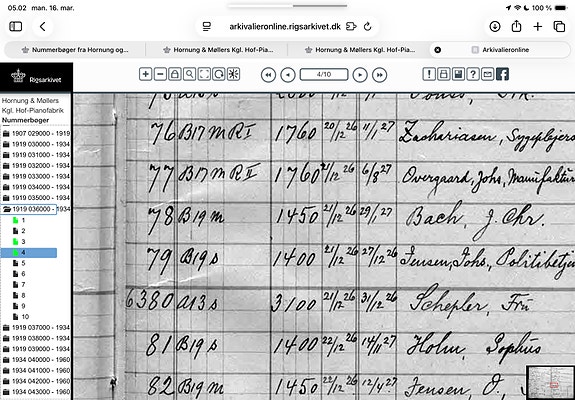 05.02 man. 16. mar.
100 %
arkivalieronline.rigsarkivet.dk
Nummerbøger fra Hornung og...
Hornung & Møllers Kgl. Hof-Pia...
Hornung & Møllers Kgl. Hof-Pia...
Arkivalieronline
Rigsarkivet
4/10
Hornung & Møllers
Kgl. Hof-Pianofabrik
Nummerbøger
1907 029000 - 1919
1919 030000 - 1934
1919 031000 - 1934
1919 032000 - 1934
1919 033000 - 1934
1919 034000 - 1934
1919 035000 - 1934
1919 036000 - 1934
1
2
3
4
5
6
7
8
9
10
1919 037000 - 1934
1919 038000 - 1934
1919 039000 - 1934
1934 040000 - 1960
1934 041000 - 1960
1934 042000 - 1960
1934 043000 - 1960
76 B17 m R I 1760 20/12 26 11/1 27 Zachariasen, Sygeplejers
77 B17 m R I 1760 21/12 26 6/8 27 Overgaard, Johs, Manufaktur
78 B19 m 1450 21/12 26 29/1 27 Bach, J. Chr.
79 B19 s 1400 21/12 26 27/12 26 Jensen, Johs, Politibetje
6380 a13 s 3100 21/12 26 31/12 26 Schepler, Frü
81 B19 s 1400 22/12 26 14/11 27 Holm, Sophus
82 B19 m 1450 22/12 26 12/4 27 Jensen, O.